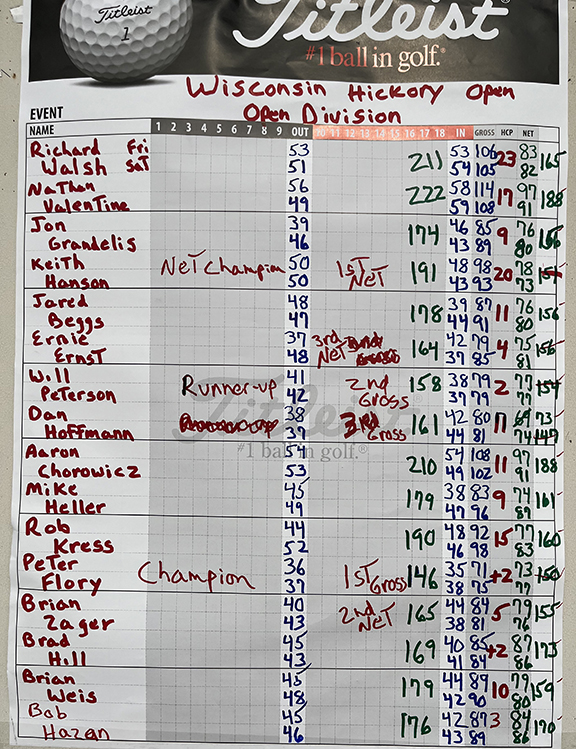 Titleist
1
Titleist
#1 ball in golf.
Wisconsin Hickory Open
Open Division
EVENT
NAME 1 2 3 4 5 6 7 8 9 OUT 10 11 12 13 14 15 16 17 18 IN GROSS HCP NET
Richard Fri 53 211 53 106 23 83 165
Walsh Sat 51 54 105 82
Nathan 56 222 58 114 17 97 188
Valentine 49 59 108 91
Jon 39 174 46 85 9 76
Grandelis 46 43 89 80
Keith Net Champion 50 1st Net 191 48 98 20 78 151
Hanson 50 43 93 73
Jared 48 178 39 87 11 76 156
Beggs 47 44 91 80
Ernie 37 3rd Net 164 42 79 4 75 156
Ernst 48 37 85 81
Will Runner-up 41 2nd Gross 158 38 79 2 77 154
Peterson 42 37 79 77
Dan 38 3rd Gross 161 42 80 73
Hoffmann 37 44 81 74 147
Titleist
#1 ball in golf.
Aaron 54 210 54 108 11 97 188
Chorowicz 53 49 102 91
Mike 45 179 38 83 9 74 161
Heller 49 47 96 87
Rob 44 190 48 92 15 77 160
Kress 52 46 98 83
Peter Champion 36 1st Gross 146 35 71 +2 73 150
Flory 37 38 75 77
Brian 40 2nd Net 165 44 84 5 79 155
Zager 43 38 81 76
Brad 45 169 40 85 +2 87 173
Hill 43 41 84 86
Brian 45 179 44 89 10 79 159
Weis 48 42 90 80
Bob 45 176 42 87 3 84 170
Hazen 46 43 89 86